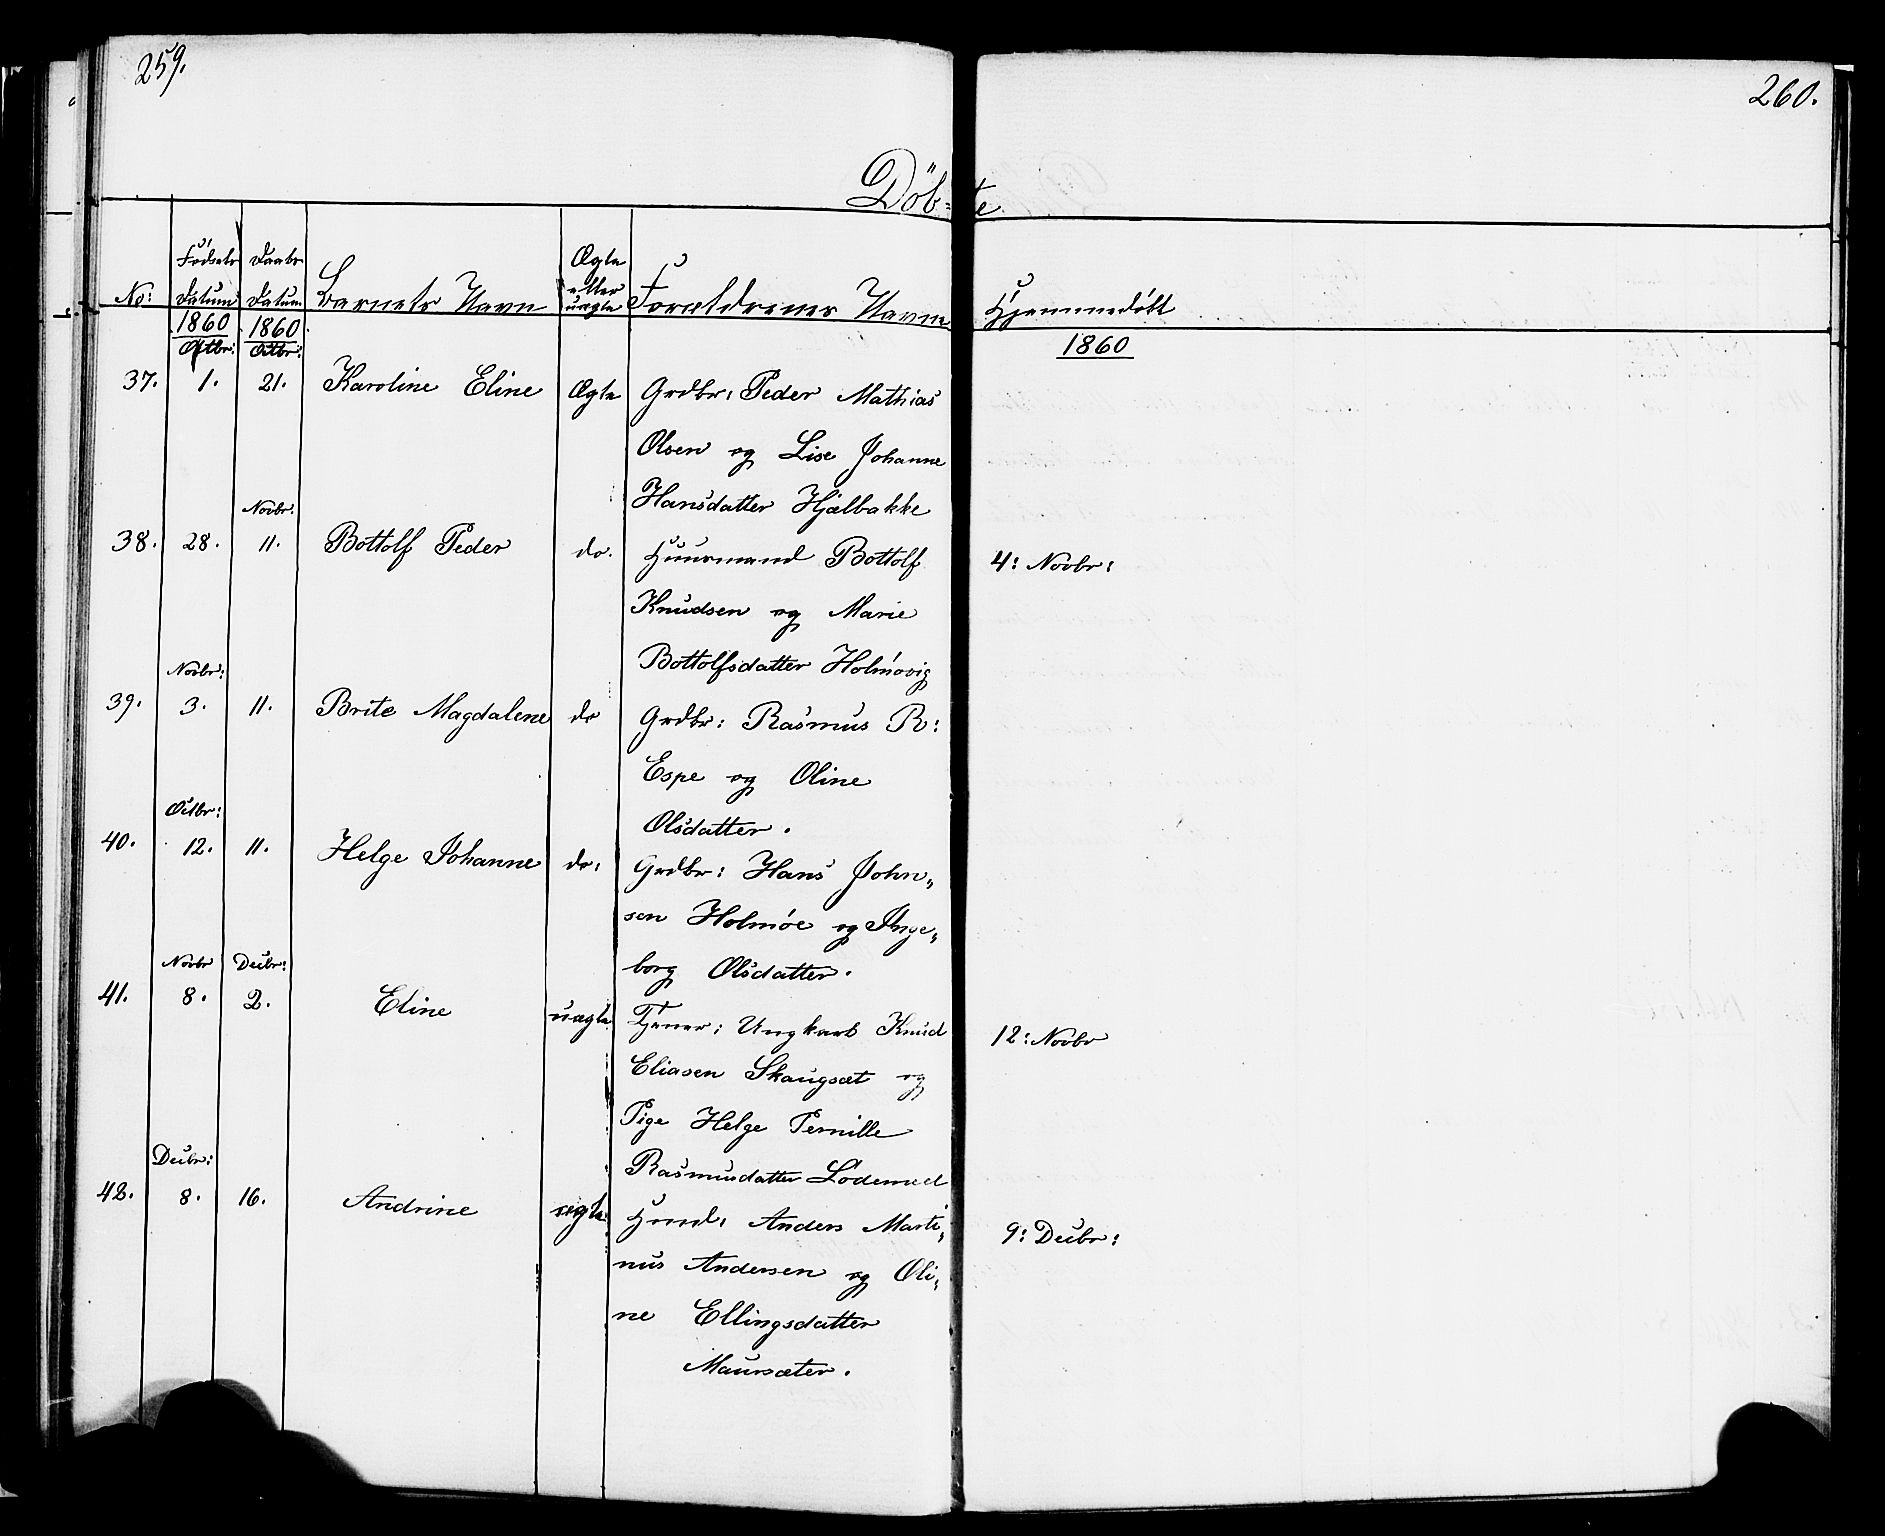 259.
260.
Döb-te
No: Fødsels Datum Daabs Datum Barnets Navn Ægte eller uægte Forældrenes Navne Hjemmedøbt
1860 1860 1860
Octbr: Octbr:
37. 1. 21. Karoline Eline Ægte Grdbr: Peder Mathias
Olsen og Lise Johanne
Hansdatter Hjælbakke
Novbr:
38. 28. 11. Bottolf Peder do. Huusmand Bottolf 4: Novbr:
Knudsen og Marie
Bottolfsdatter Holmøvig
Novbr:
39. 3. 11. Brite Magdalene do Grdbr: Rasmus R:
Espe og Oline
Olsdatter.
Octbr:
40. 12. 11. Helge Johanne do: Grdbr: Hans John„
sen Holmøe og Inge„
borg Olsdatter.
Novbr Decbr:
41. 8. 2. Eline uægte Tjener: Ungkarl Knud 12: Novbr
Eliasen Skaugsæt og
Pige Helge Pernille
Rasmusdatter Lødemeel
Decbr:
42. 8. 16. Andrine ægte Hmd: Anders Marti„ 9: Decbr:
nus Andersen og Oli„
ne Ellingsdatter
Maursæter.